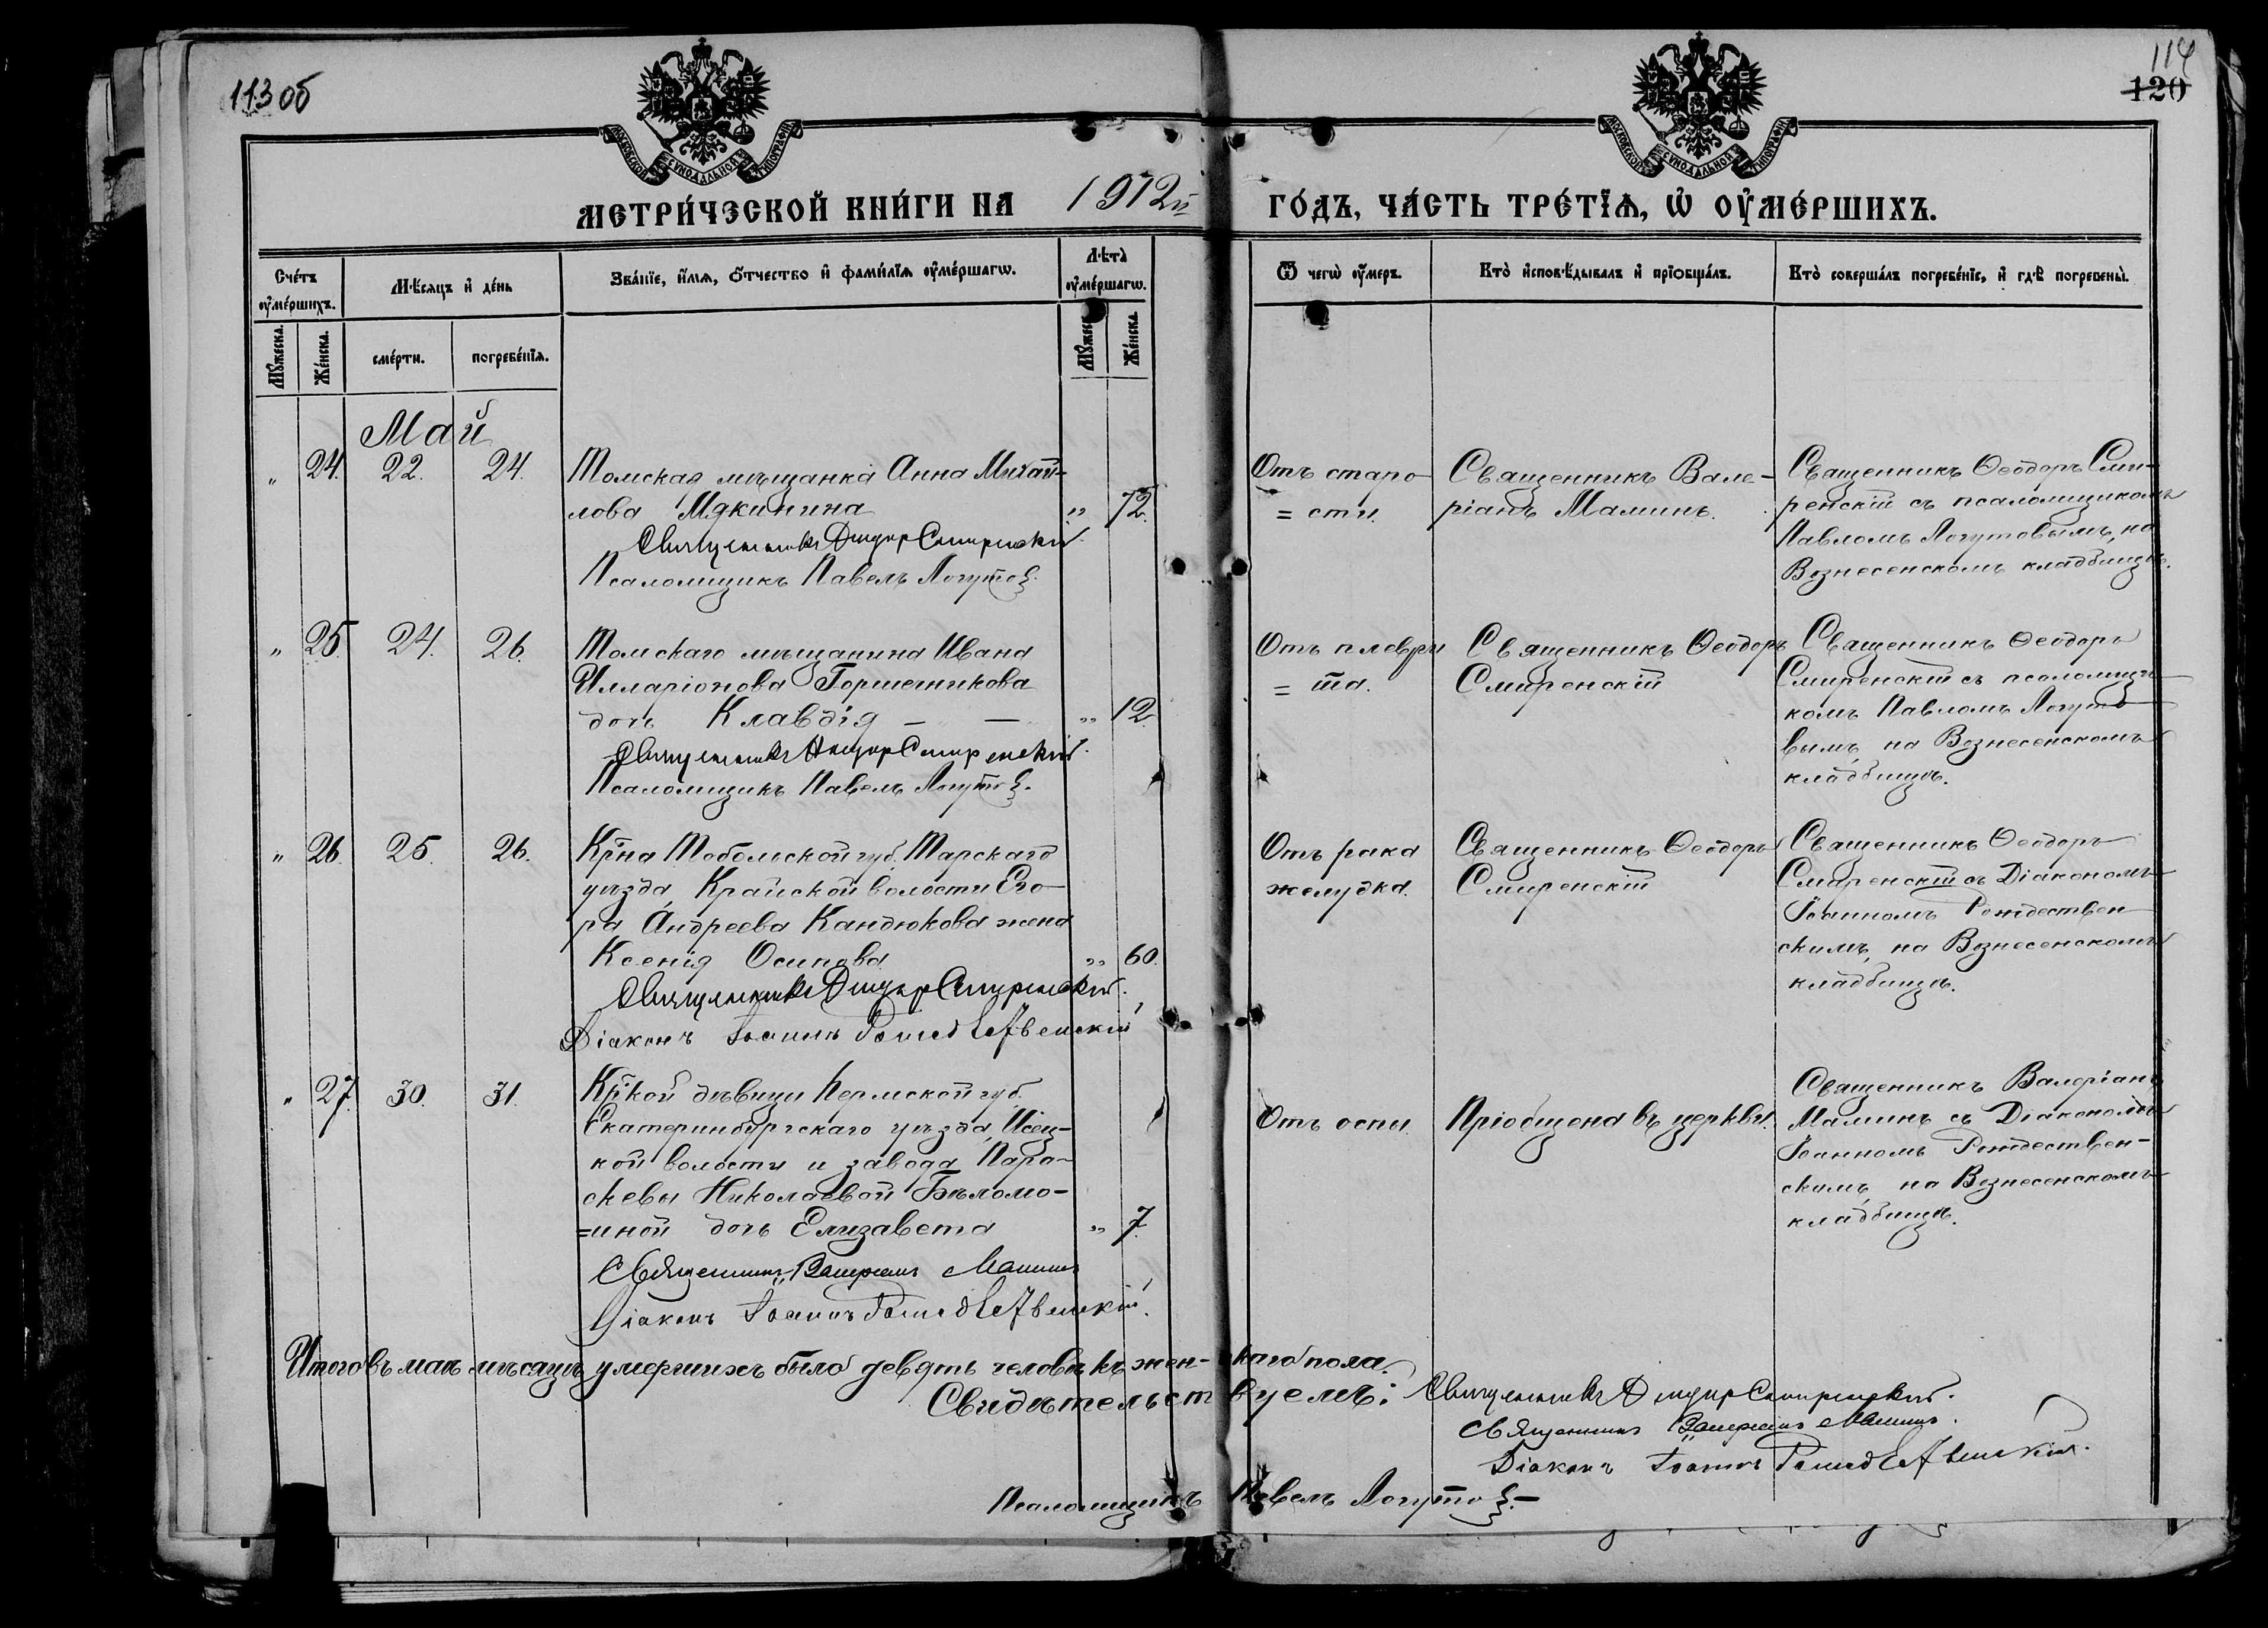 113 об
114
120
МОСКОВСКОЙ СѴНОДАЛЬНОЙ ТИПОГРАФІИ
МОСКОВСКОЙ СѴНОДАЛЬНОЙ ТИПОГРАФІИ
МЕТРИ́ЧЕСКОЙ КНИ́ГИ НА 1912й ГО́ДЪ, ЧА́СТЬ ТРЕ́ТЇѦ, Ѡ ОУ҆МЕ́РШИХЪ.
Сче́тъ оу҆ме́ршихъ.
Мѣ́сяцъ и҆ де́нь
Зва́нїе, и҆́мя, ѻ҆́тчество и҆ фами́лїѧ оу҆ме́ршагѡ.
Лѣ́та оу҆ме́ршагѡ.
Ѿ чегѡ̀ оу҆́меръ.
Кто̀ и҆сповѣ́дывалъ и҆ прїѻбща́лъ.
Кто̀ соверша́лъ погребе́нїе, и҆ гдѣ̀ погребены̀.
Мꙋ́жеска.
Же́нска.
сме́рти.
погребе́нїѧ.
Мꙋ́жеска.
Же́нска.
Май
" 24. 22. 24.
Томская мѣщанка Анна Михай-
лова Мякинина " 72.
Священникъ Ѳеодоръ Смиренскій.
Псаломщикъ Павелъ Логутов.
Отъ старо
= сти.
Священникъ Вале-
ріанъ Маминъ.
Священникъ Ѳеодоръ Сми-
ренскій съ псаломщикомъ
Павломъ Логутовымъ, на
Вознесенскомъ кладбищѣ.
" 25. 24. 26.
Томскаго мѣщанина Ивана
Илларіонова Горшечникова
дочь Клавдія — — " 12
Священникъ Ѳеодоръ Смиренскій.
Псаломщикъ Павелъ Логутов.
Отъ плеври
= та.
Священникъ Ѳеодоръ
Смиренскій
Священникъ Ѳеодоръ
Смиренскій съ псаломщи-
комъ Павломъ Логуто
вымъ, на Вознесенскомъ
кладбищѣ.
" 26. 25. 26.
Кр-на Тобольской губ. Тарскаго
уѣзда, Крайской волости Его-
ра Андреева Кандюкова жена
Ксенія Осипова " 60.
Священникъ Ѳеодоръ Смиренскій.
Діаконъ Іоаннъ Рождественскій
Отъ рака
желудка.
Священникъ Ѳеодоръ
Смиренскій
Священникъ Ѳеодоръ
Смиренскій съ Діакономъ
Іоанномъ Рождествен
скимъ, на Вознесенскомъ
кладбищѣ.
" 27. 30. 31.
Кр-кой дѣвицы Пермской губ.
Екатеринбургскаго уѣзда, Исец-
кой волости и завода Пара-
скевы Николаевой Бѣломо-
=иной дочь Елизавета " 7.
Священникъ Валеріанъ Маминъ
Діаконъ Іоаннъ Рождественскій.
Отъ оспы.
Пріобщена въ церкви.
Священникъ Валеріанъ
Маминъ съ Діакономъ
Іоанномъ Рождествен-
скимъ, на Вознесенскомъ
кладбищѣ.
Итого въ маѣ мѣсяцѣ умершихъ было девять человѣкъ жен-скаго пола.
Свидѣтельствуемъ: Священникъ Ѳеодоръ Смиренскій.
Священникъ Валеріанъ Маминъ.
Діаконъ Іоаннъ Рождественскій.
Псаломщикъ Павелъ Логутов.—